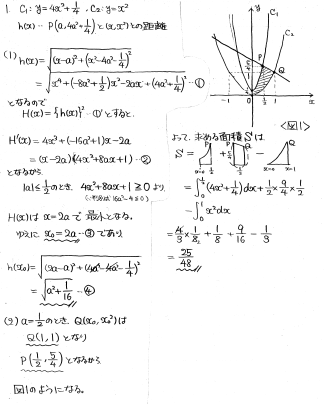 1. C₁: y=4x²+1/4, C₂: y=x²
h(x)… P(a, 4a²+1/4) と(x, x²)との距離
(1) h(x)=√((x-a)²+(x²-4a²-1/4)²)
= √(x⁴+(-8a²+1/2)x²-2ax+(4a²+1/4)²) …①
となるので
H(x)={h(x)}² …①' とすると、
H'(x)=4x³+(-16a²+1)x-2a
=(x-2a)(4x²+8ax+1) …②
となるから
|a|≤1/2のとき 4x²+8ax+1≥0より
(∵判別式 16a²-4≤0)
H(x)は x=2aで最小となる。
ゆえに x₀=2a …③であり
h(x₀)=√((2a-a)²+(4a²-4a²-1/4)²)
=√(a²+1/16) …④
(2) a=1/2のとき Q(x₀, x₀²)は
Q(1,1)となり
P(1/2, 5/4)となるから
図1のようになる。
y
C₁
C₂
P
Q
-1
0
1/2
1
x
<図1>
よって、求める面積Sは
S= + -
=∫(4x²+1/4)dx+1/2×9/4×1/2
-∫x²dx
=4/3×1/8+1/8+9/16-1/3
=25/48